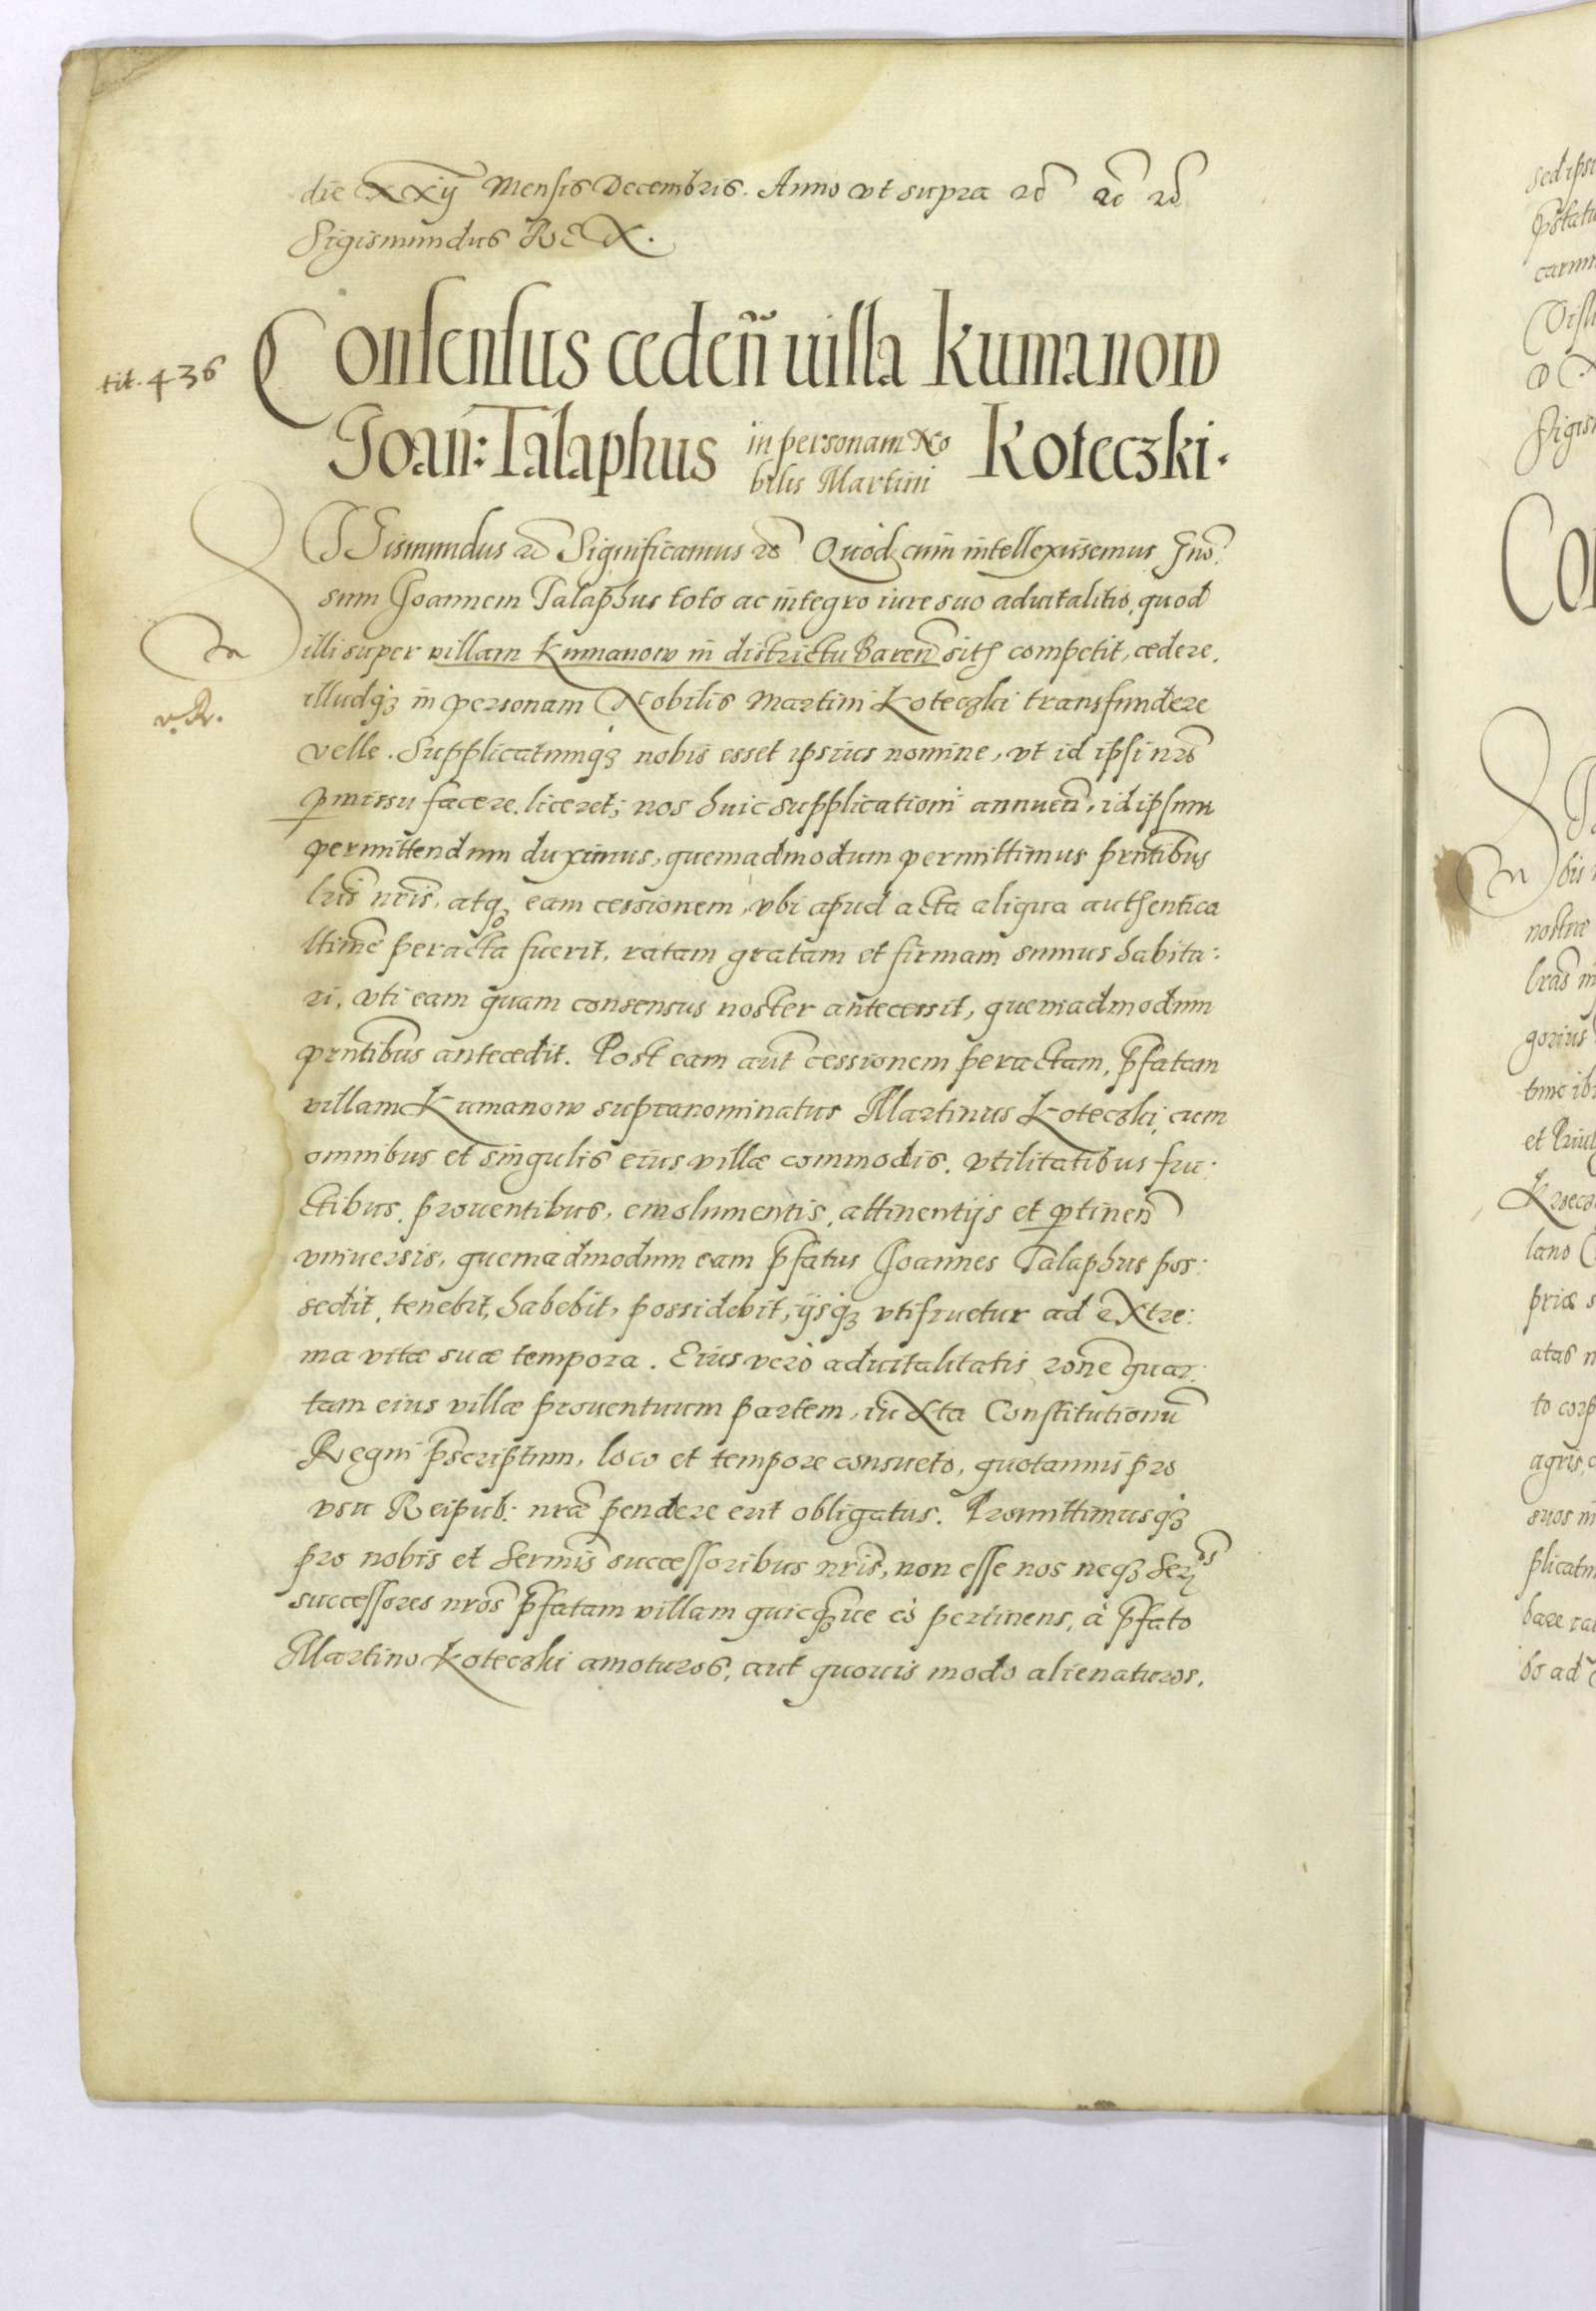 die XXij Mensis Decembris. Anno vt supra etc etc etc
Sigismundus REX.
tit. 436
Consensus cedeñ uilla Kumanow
Joan: Talaphus in personam No
bilis Martini Koteczki.
SIGismundus etc Significamus etc Quod cum intellexissemus Gno
sum Joannem Talaphus toto ac integro iure suo aduitalitio, quod
illi super villam Kumanow in districtu Bareñ sitã competit, cedere,
illudq3 in personam Nobilis Martini Koteczki transfundere
velle. Supplicatumq3 nobis esset ipsius nomine, vt id ipsi nro
pmissu facere liceret; nos huic supplicationi annueñ, id ipsum
permittendum duximus, quemadmodum permittimus pñtibus
lris nris, atq3 eam cessionem, vbi apud acta aliqua authentica
ltime peracta fuerit, ratam gratam et firmam sumus habitu:
ri, vti eam quam consensus noster antecessit, quemadmodum
prntibus antecedit. Post eam aut cessionem peractam, pfatam
villam Kumanow supranominatus Martinus Koteczki, cum
omnibus et singulis eius villæ commodis, vtilitatibus fru:
ctibus, prouentibus, emolumentis, attinentijs et ptineñ
vniuersis, quemadmodum eam pfatus Joannes Talaphus pos:
sedit, tenebit, habebit, possidebit, ijsq3 vtifruetur ad eXtre:
ma vitæ suæ tempora. Eius vero aduitalitatis rone quar:
tam eius villæ prouentuum partem, iuXta Constitutionũ
Regni pscriptum, loco et tempore consueto, quotannis pro
vsu Reipub: nræ pendere erit obligatus. Promittimusq3
pro nobis et Sermis successoribus nris, non esse nos neq3 Ser
successores nros pfatam villam quicq3ue eo pertinens, à pfato
Martino Koteczki amoturos, aut quouis modo alienaturos,